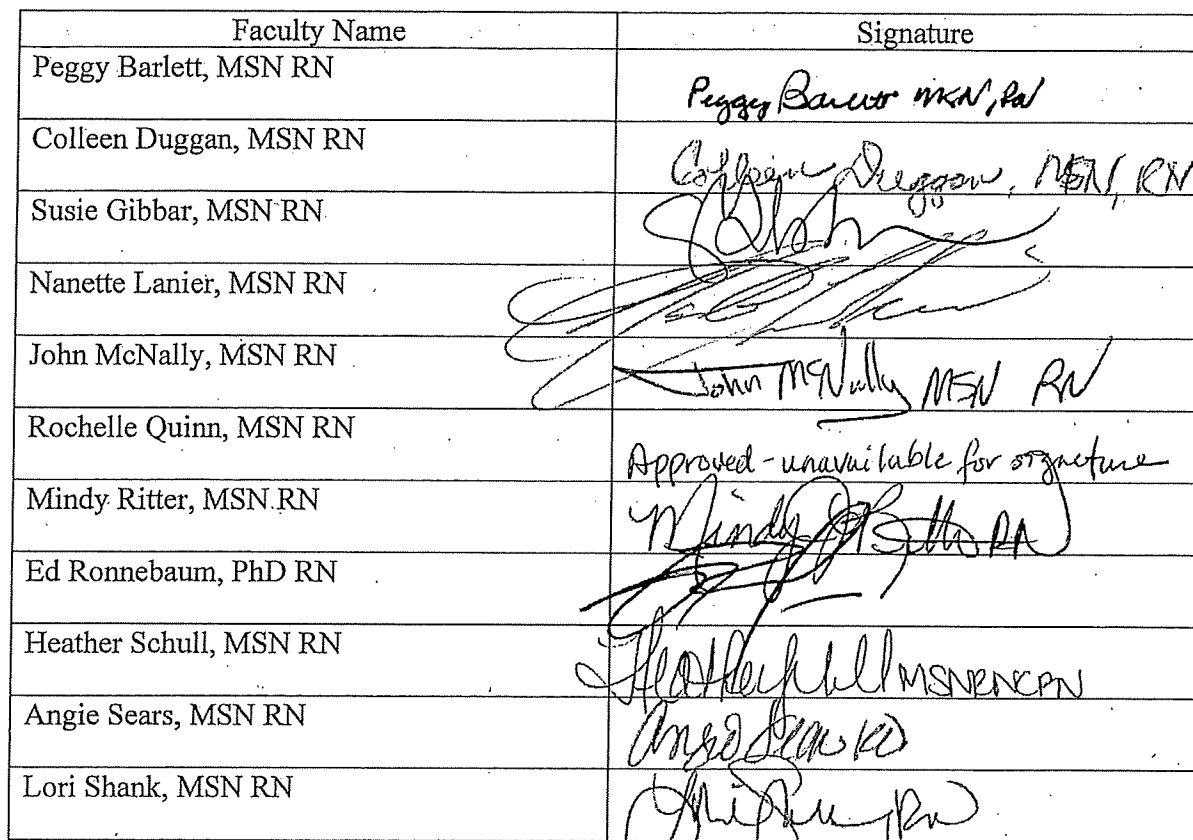 Faculty Name Signature
Peggy Barlett, MSN RN Peggy MSN, RN
Colleen Duggan, MSN RN Colleen Duggan, MSN, RN
Susie Gibbar, MSN RN
Nanette Lanier, MSN RN
John McNally, MSN RN John McNally MSN RN
Rochelle Quinn, MSN RN Approved - unavailable for signature
Mindy Ritter, MSN RN Mindy RN
Ed Ronnebaum, PhD RN
Heather Schull, MSN RN Heather MSNRNCPN
Angie Sears, MSN RN
Lori Shank, MSN RN RN